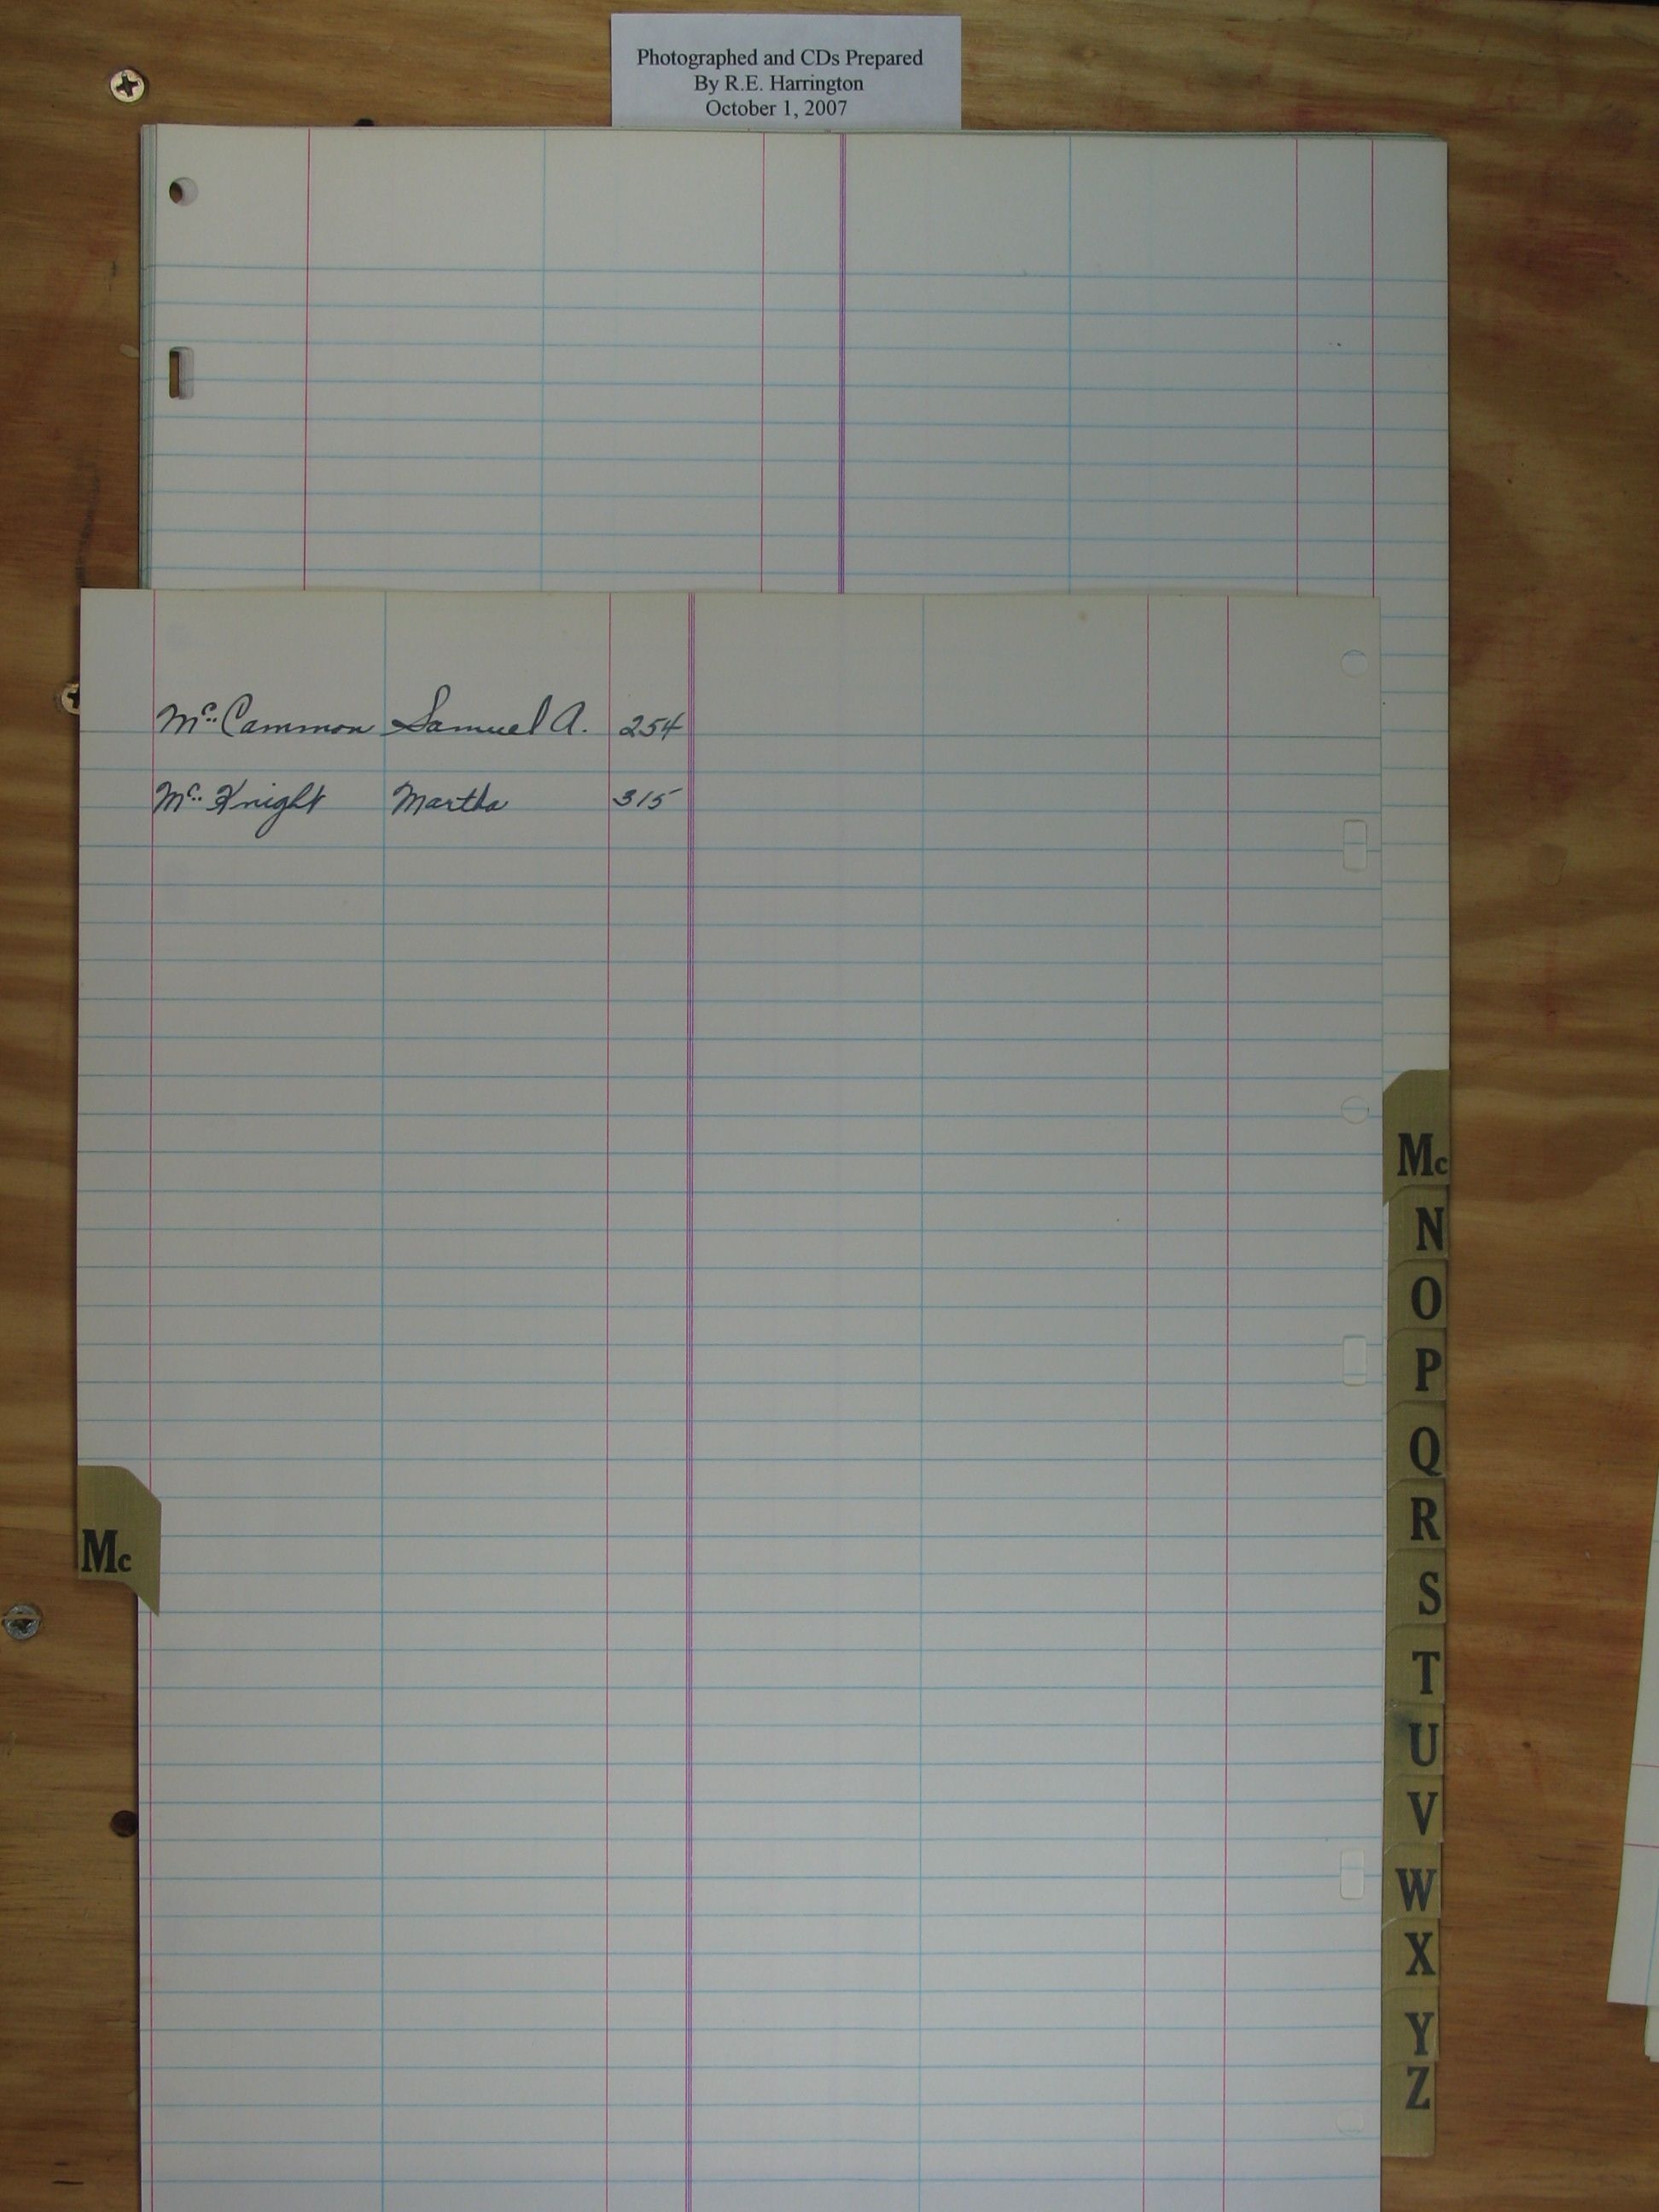 Photographed and CDs Prepared
By R.E. Harrington
October 1, 2007
Mc. Cammon Samuel A. 254
Mc. Knight Martha 315
Mc
N
O
P
Q
R
S
T
U
V
W
X
Y
Z
Mc